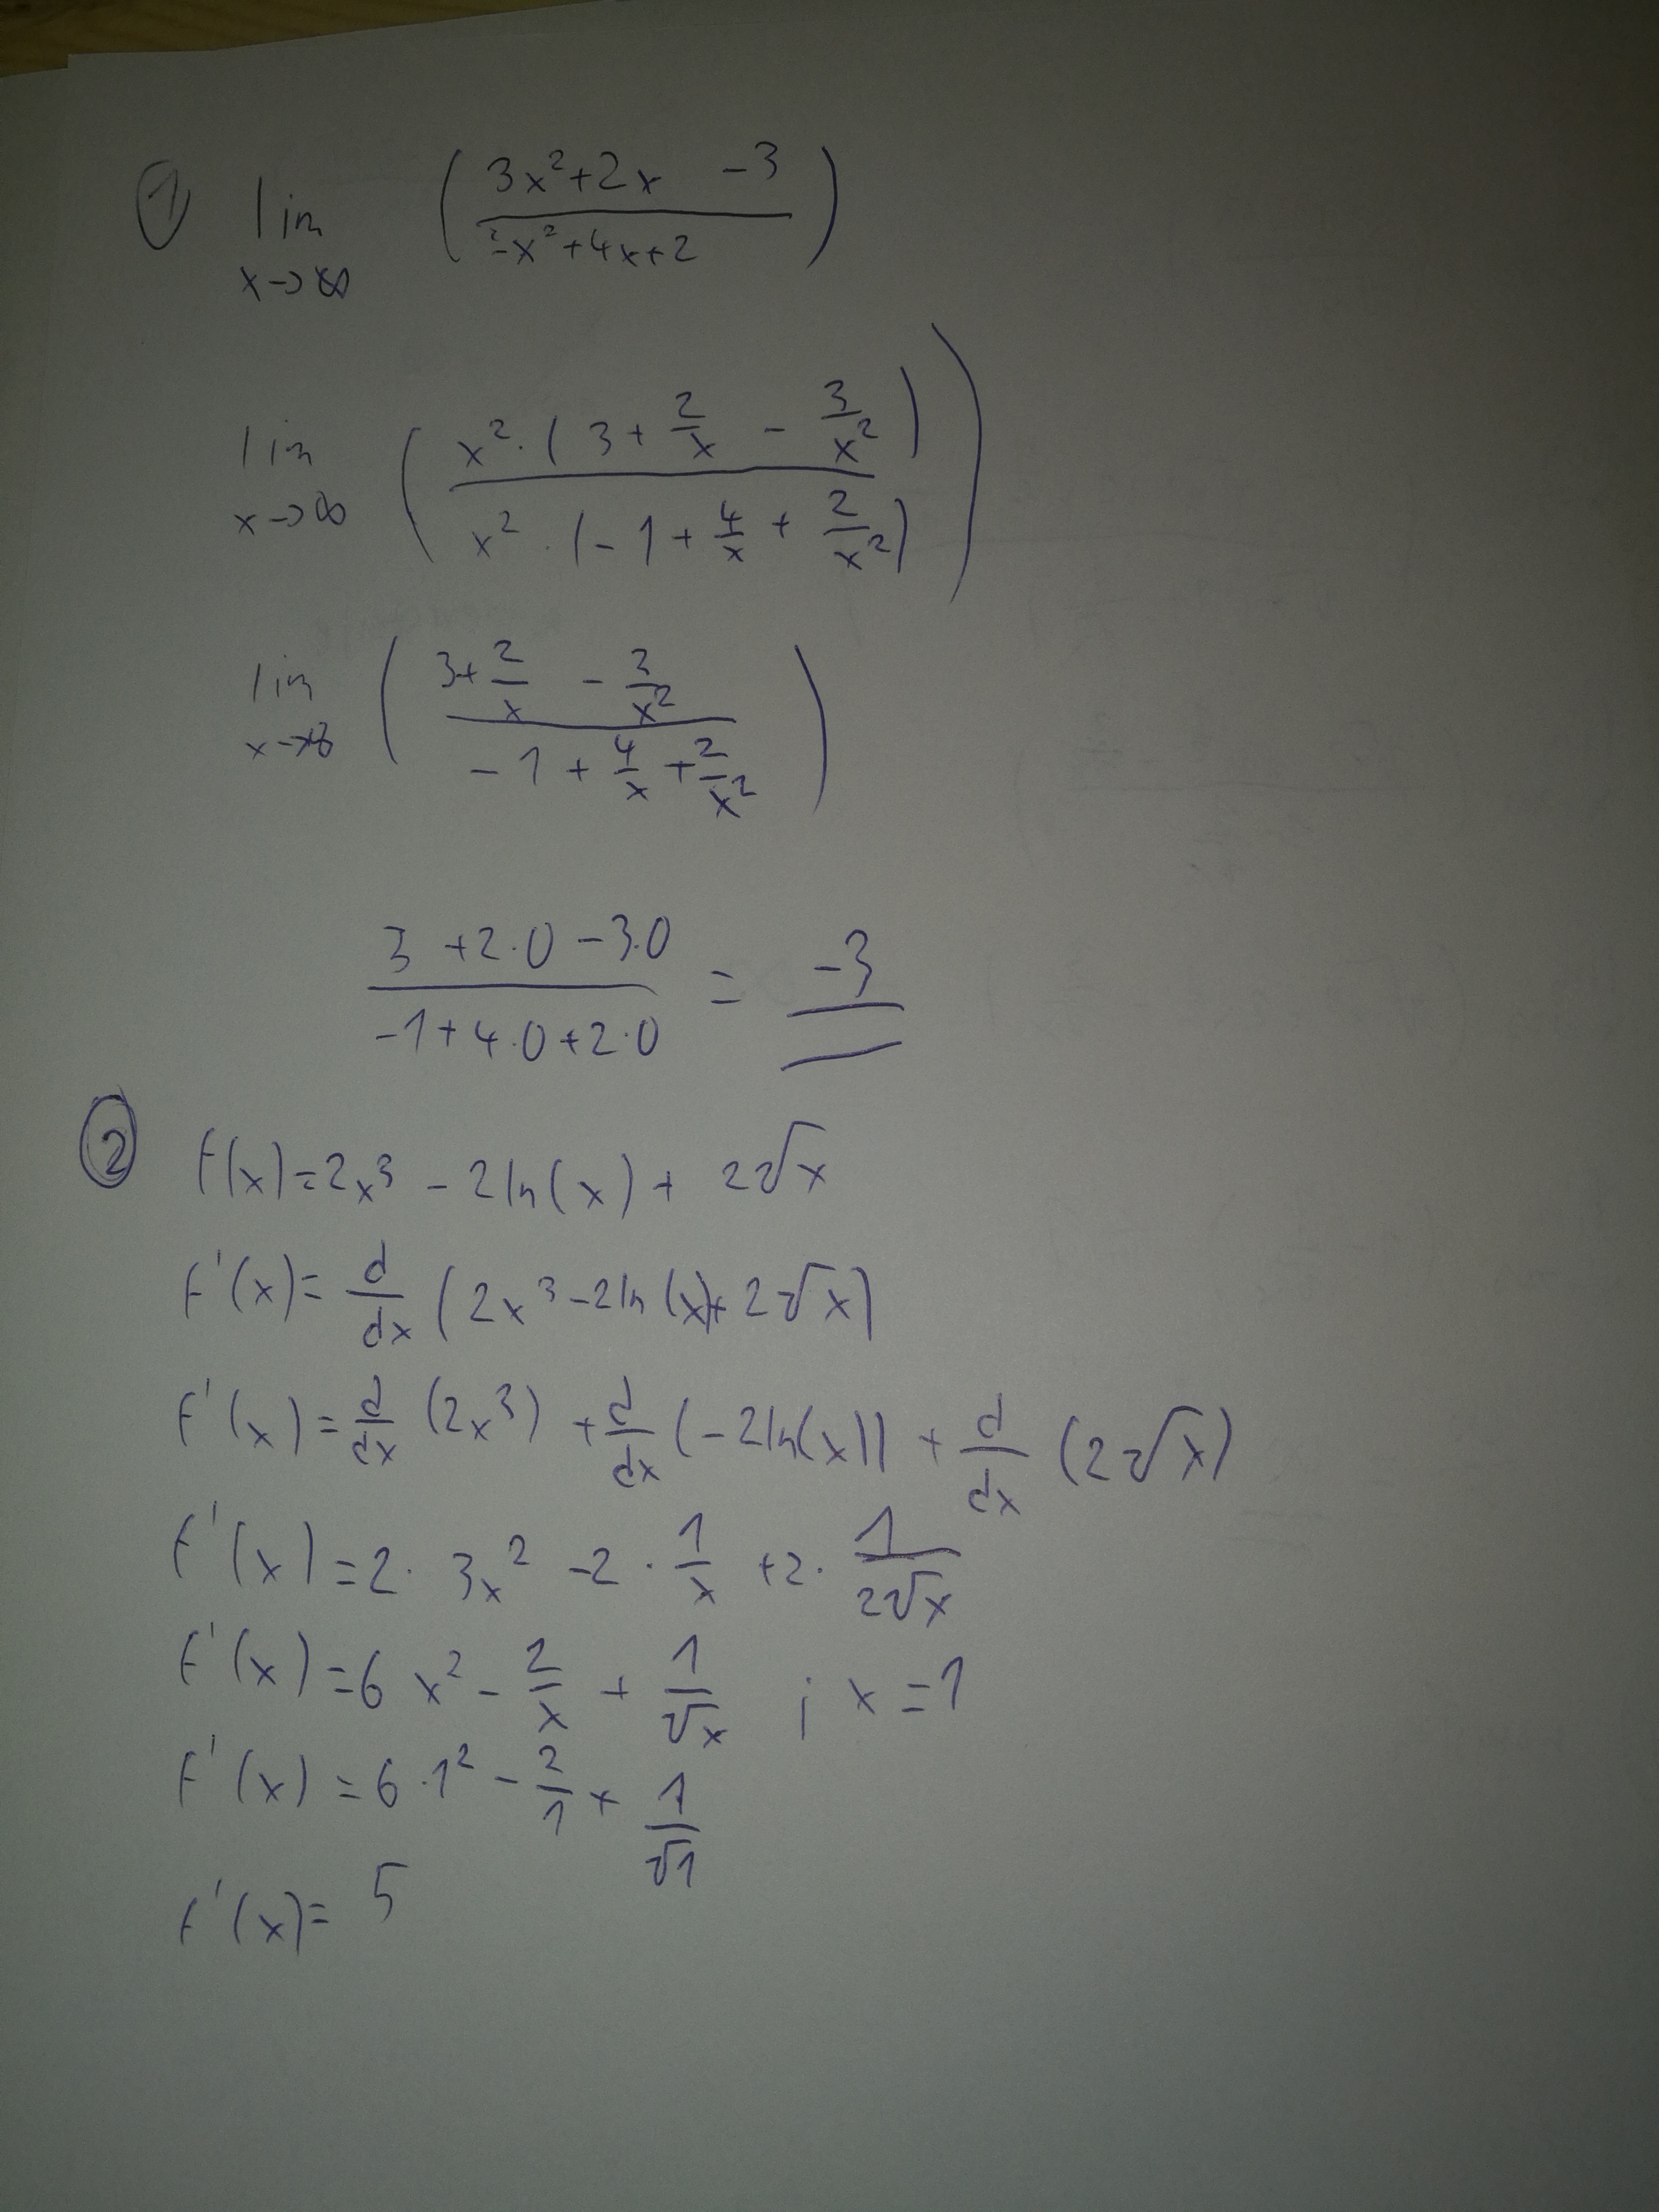 ① lim x→∞ ( (3x²+2x -3) / (-x²+4x+2) )
lim x→∞ ( (x²·(3+2/x - 3/x²)) / (x²·(-1+4/x+2/x²)) )
lim x→∞ ( (3+2/x - 3/x²) / (-1+4/x+2/x²) )
(3+2·0-3·0) / (-1+4·0+2·0) = -3
② f(x)=2x³-2ln(x)+2√x
f'(x)= d/dx (2x³-2ln(x)+2√x)
f'(x)= d/dx (2x³) + d/dx (-2ln(x)) + d/dx (2√x)
f'(x)=2·3x²-2·1/x+2·1/(2√x)
f'(x)=6x²-2/x+1/√x ; x=1
f'(x)=6·1²-2/1+1/√1
f'(x)=5